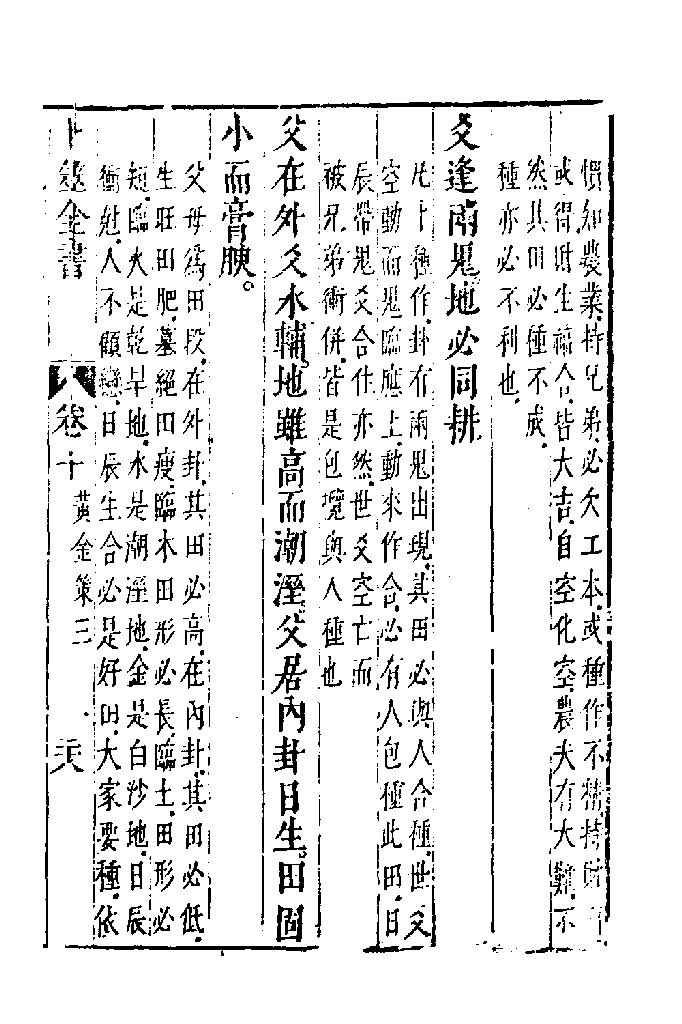 慣知農業持兄弟必欠工本或種作不精持財
或得財生福合皆大吉自空化空農夫有大難不
然其田必種不成
種亦必不利也
爻逢兩鬼地必同耕
凡卜種作卦有兩鬼出現其田必與人合種世爻
空動而鬼臨應上動來作合必有人包種此田日
辰帶鬼爻合住亦然世爻空亡而
被兄弟衝併皆是包攬與人種也
父在外爻水輔地雖高而潮溼父居內卦日生田固
小而膏腴。
父母爲田段在外卦其田必高在內卦其田必低
生旺田肥墓絕田瘦臨木田形必長臨土田形必
短臨火是乾旱地水是潮溼地金是白沙地日辰
衝尅人不顧戀日辰生合必是好田大家要種依
卜筮全書 卷十 黃金策三 二六